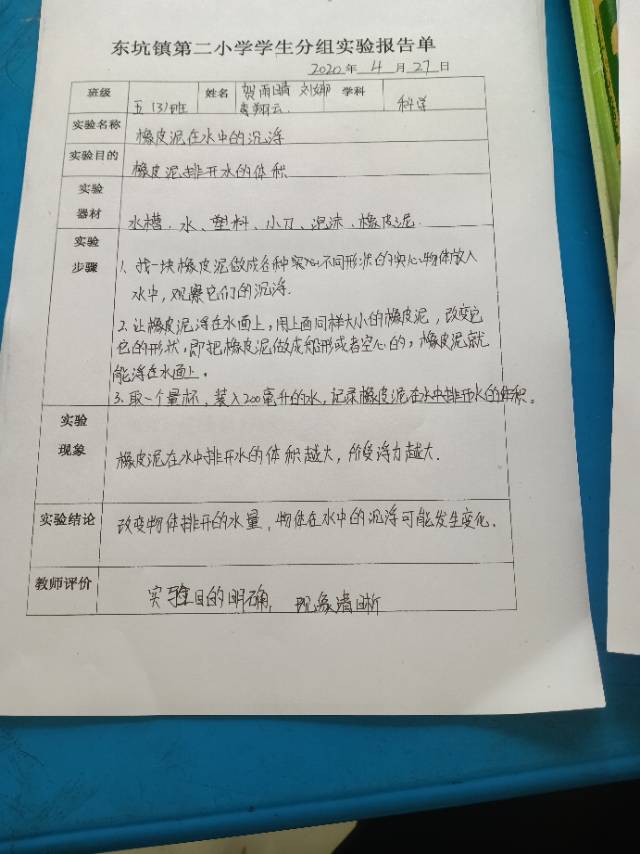 东坑镇第二小学学生分组实验报告单
2020年4月27日
班级 五(3)班 姓名 贺雨晴 刘娜 学科 科学
翔云
实验名称 橡皮泥在水中的沉浮
实验目的 橡皮泥排开水的体积
实验
器材 水槽、水、塑料、小刀、泡沫、橡皮泥
实验
步骤 1、找一块橡皮泥做成各种不同形状的实心物体放入
水中,观察它们的沉浮.
2.让橡皮泥浮在水面上,用上面同样大小的橡皮泥,改变它
它的形状,即把橡皮泥做成船形或者空心的,橡皮泥就
能浮在水面上。
3.取一个量杯,装入200毫升的水,记录橡皮泥在水中排开水的体积。
实验
现象 橡皮泥在水中排开水的体积越大,所受浮力越大.
实验结论 改变物体排开的水量,物体在水中的沉浮可能发生变化.
教师评价 实验目的明确,现象清晰